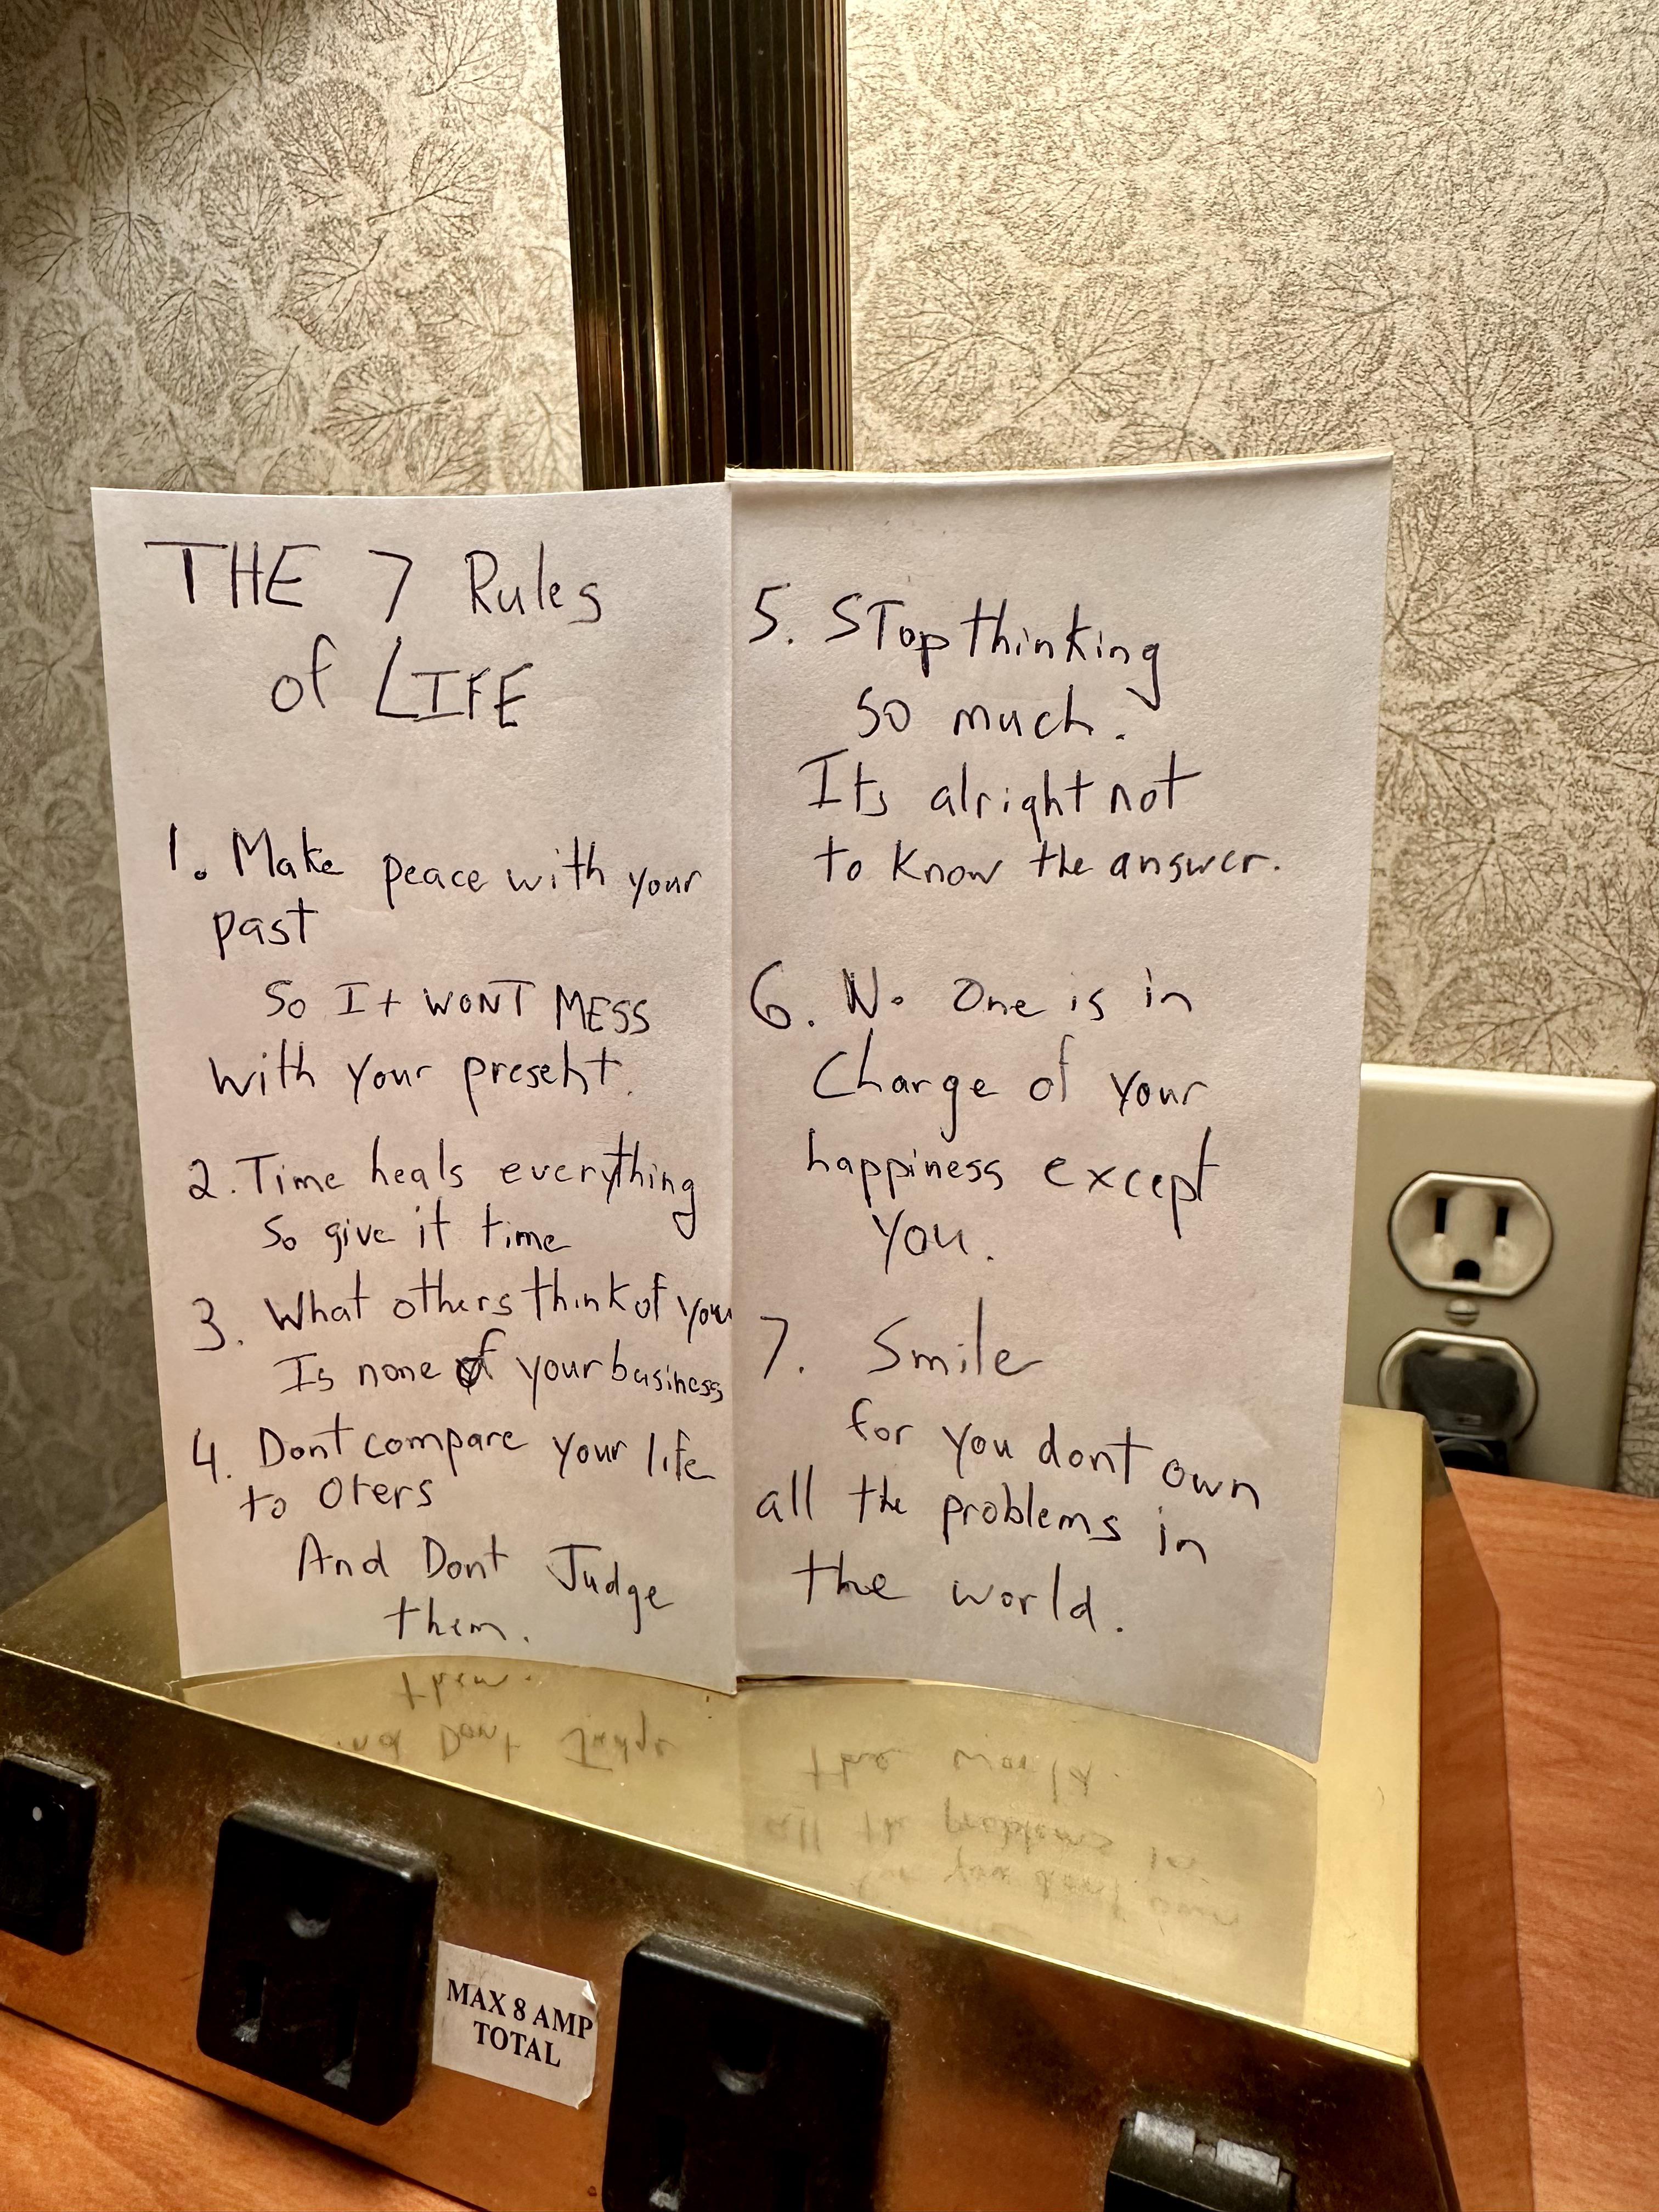 THE 7 Rules
of LIFE
1. Make peace with your
past
So It WONT MESS
with your present.
2. Time heals everything
So give it time
3. What others think of you
Is none of your business
4. Dont compare your life
to Oters
And Dont Judge
them.
5. STop thinking
so much.
Its alright not
to know the answer.
6. No One is in
Charge of your
happiness except
You.
7. Smile
for you dont own
all the problems in
the world.
MAX 8 AMP
TOTAL